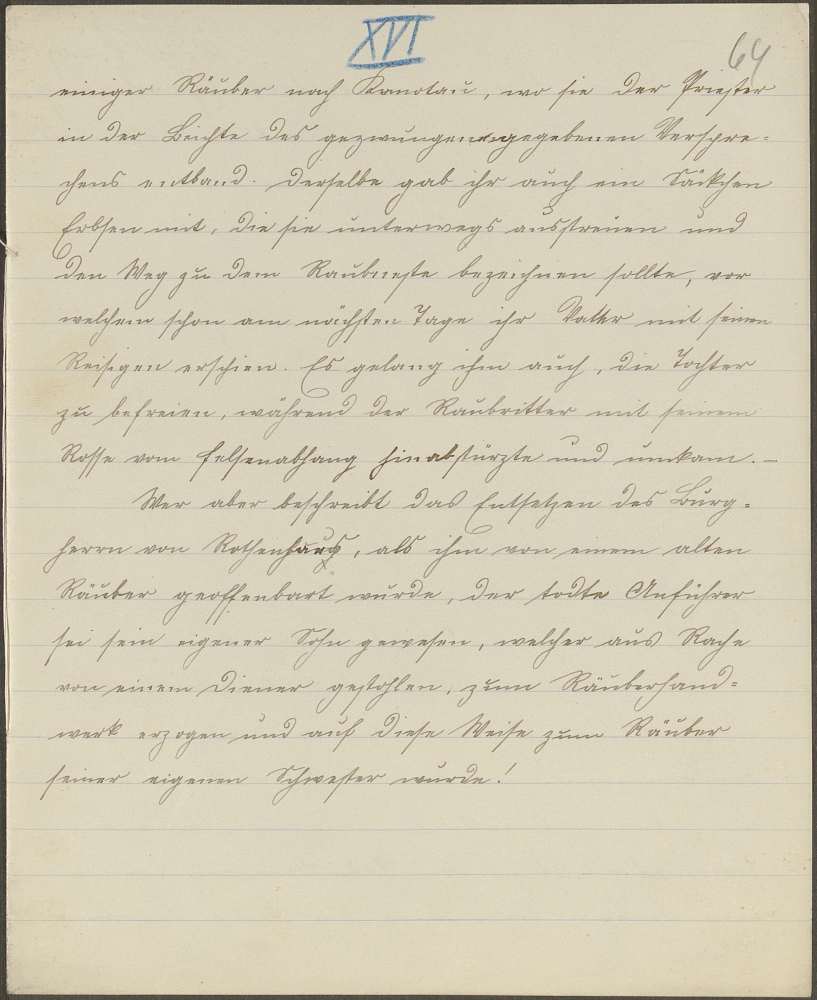 XVI
64
einiger Räuber nach Kanotau, wo sie der Priester
in der Beichte des gezwungen gegebenen Verspre-
chens entband. Derselbe gab ihr auch ein Säckchen
Erbsen mit, die sie unterwegs ausstreuen und
den Weg zu dem Raubneste bezeichnen sollte, vor
welchem schon am nächsten Tage ihr Vater mit seinen
Reisigen erschien. Es gelang ihm auch, die Tochter
zu befreien, während der Raubritter mit seinem
Rosse vom Felsenabhang hinabstürzte und umkam. –
Wer aber beschreibt das Entsetzen des Burg-
herrn von Rothenhaus, als ihm von einem alten
Räuber geoffenbart wurde, der todte Anführer
sei sein eigener Sohn gewesen, welcher aus Rache
von einem Diener gestohlen, zum Räuberhand-
werk erzogen und auf diese Weise zum Räuber
seiner eigenen Schwester wurde!